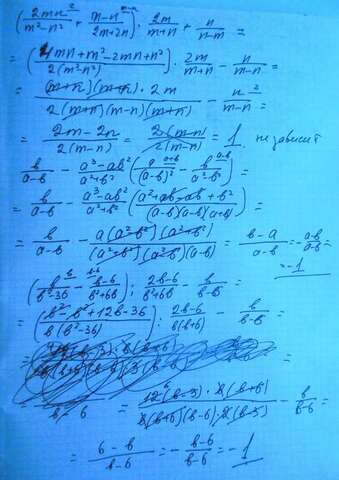 (2mn/(m²-n²) + (m-n)/(2m+2n)) · 2m/(m+n) + n/(n-m) =
= (4mn+m²-2mn+n²)/(2(m²-n²)) · 2m/(m+n) - n/(m-n) =
= (m+n)(m+n)·2m/(2(m+n)(m-n)(m+n)) - n/(m-n) =
= (2m-2n)/(2(m-n)) = 2(m-n)/(2(m-n)) = 1 не зависит
b/(a-b) - (a³-ab²)/(a²+b²) (a/(a-b)² - b/(a²-b²)) =
= b/(a-b) - (a³-ab²)/(a²+b²) · (a²+ab-ab+b²)/((a-b)(a-b)(a+b)) =
= b/(a-b) - a(a²-b²)(a²+b²)/((a²+b²)(a²-b²)(a-b)) = (b-a)/(a-b) = -(a-b)/(a-b) =
= -1
(b/(b²-36) - (b-6)/(b²+6b)) : (2b-6)/(b²+6b) - b/(b-6) =
= (b²-b²+12b-36)/(b(b²-36)) : (2b-6)/(b(b+6)) - b/(b-6) =
= 12(b-3)·b(b+6)/(b(b+6)(b-6)·2(b-3)) - b/(b-6) =
= (6-b)/(b-6) = -(b-6)/(b-6) = -1